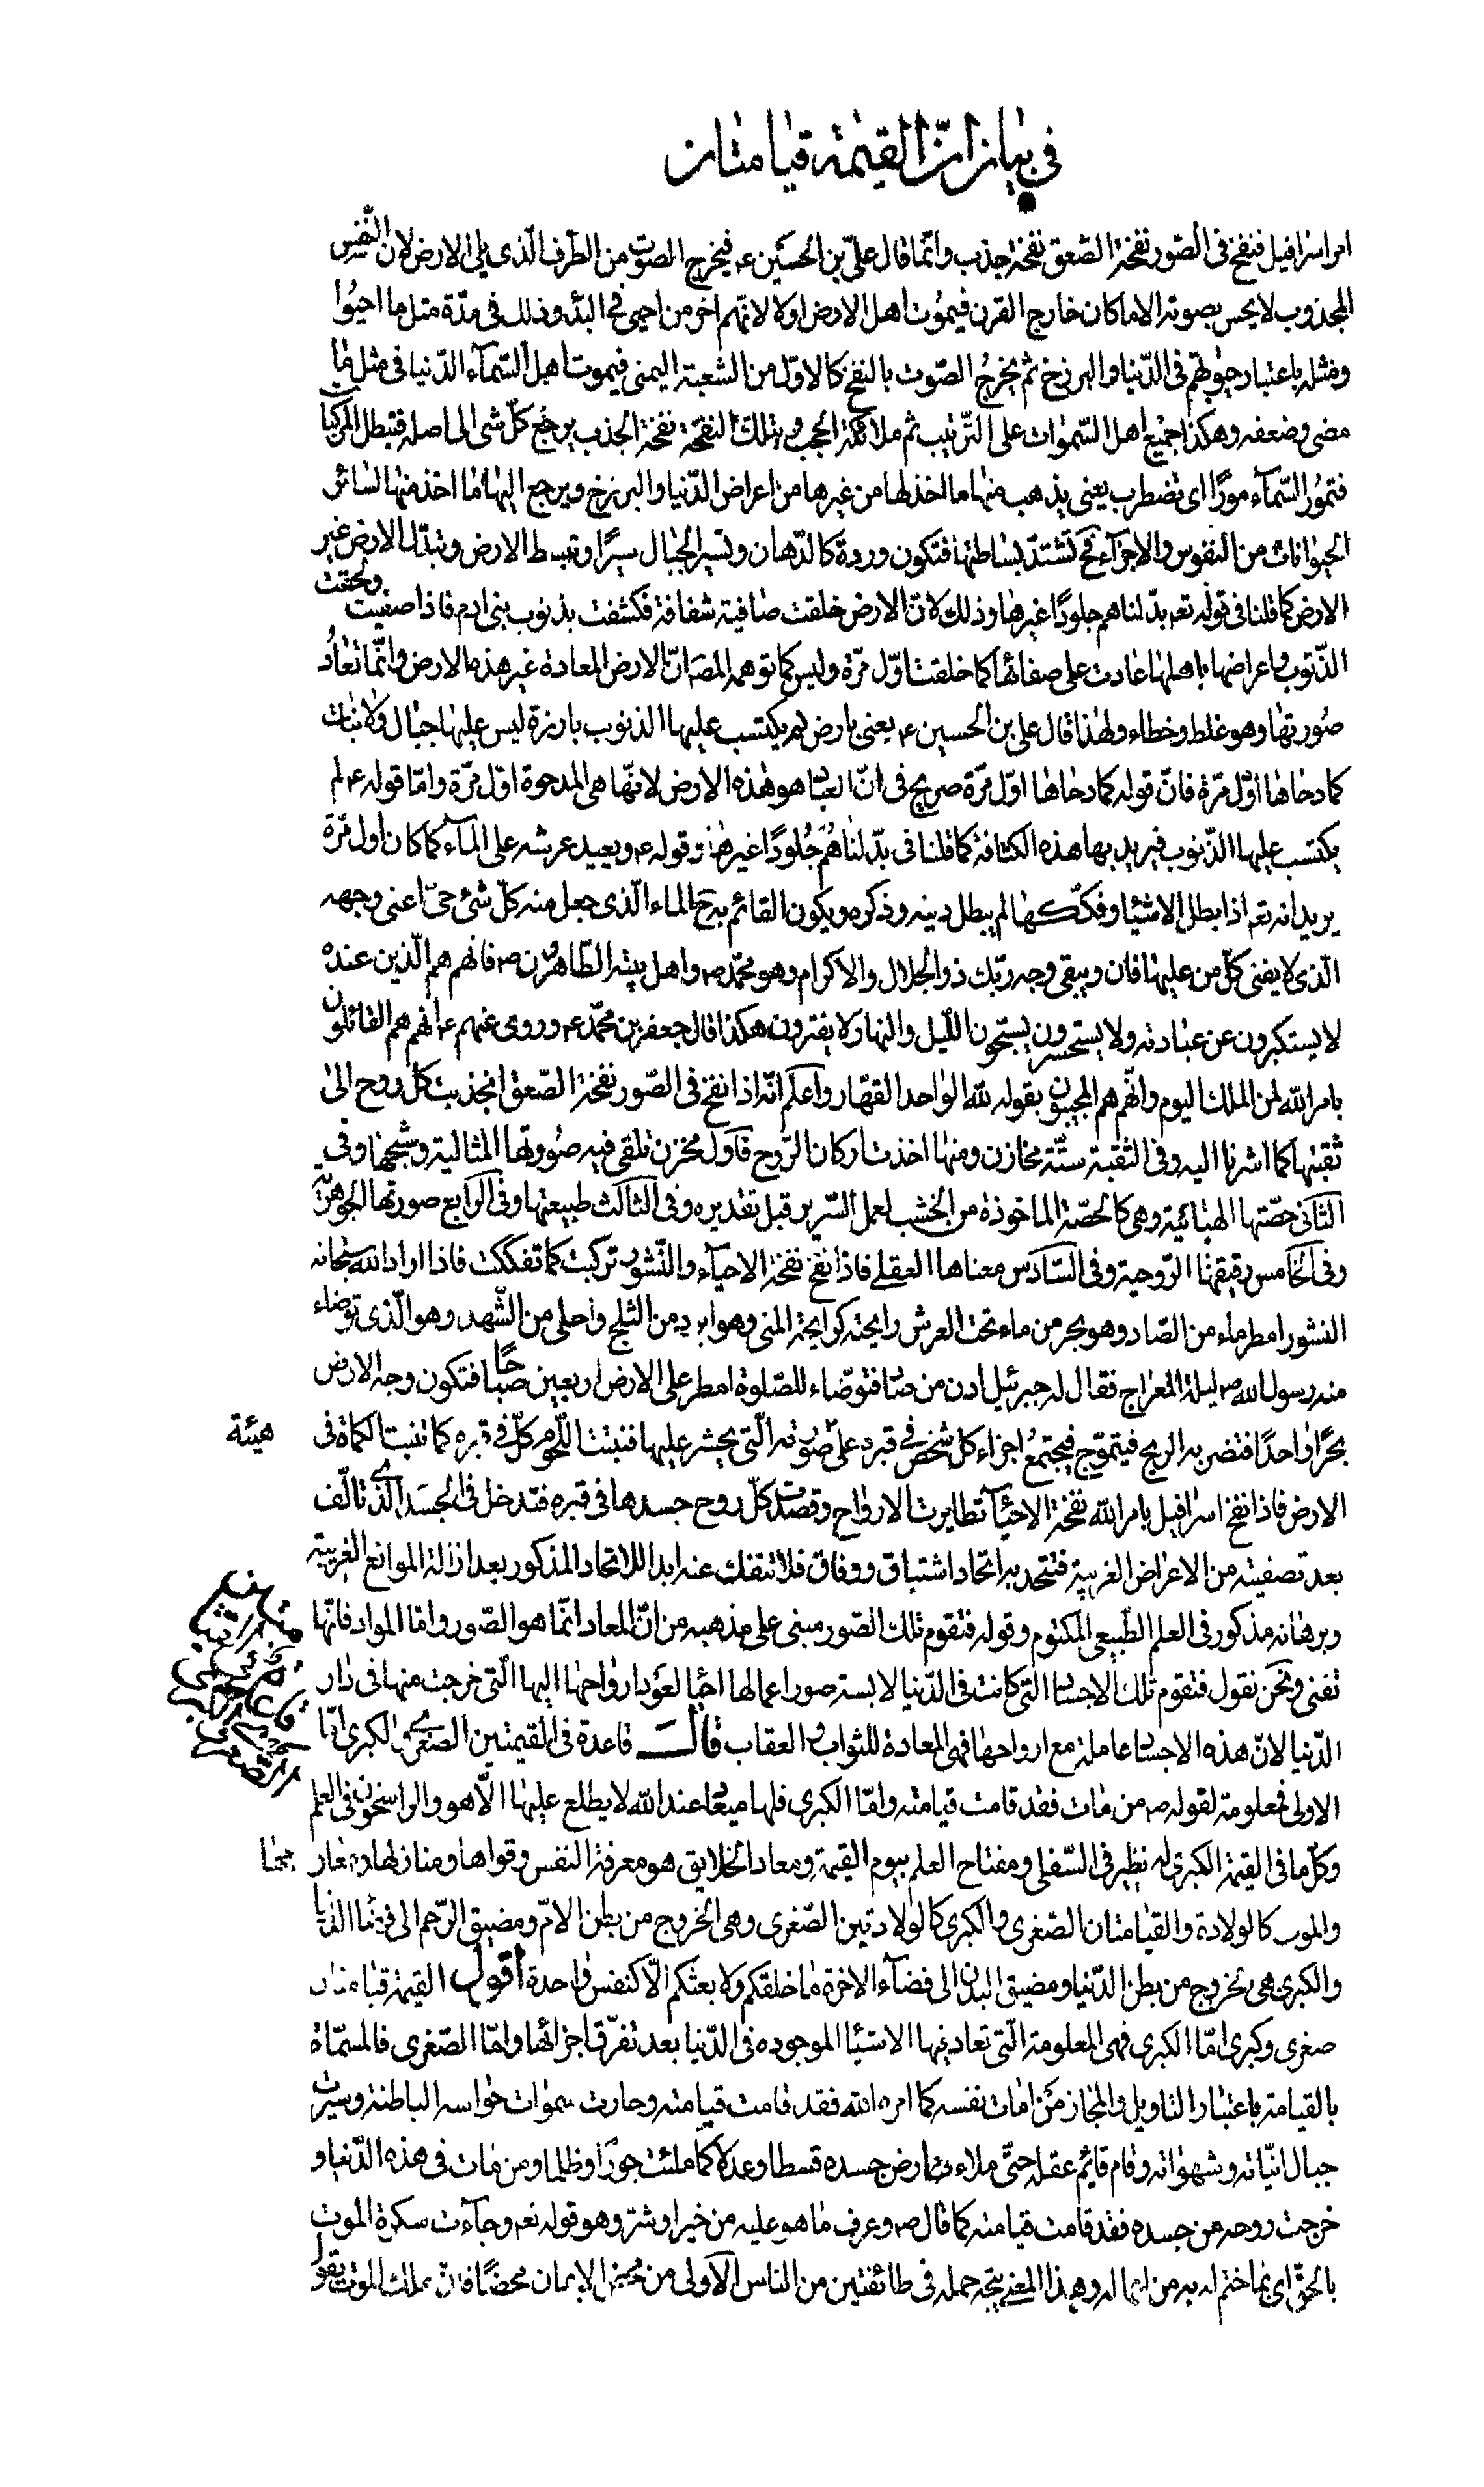 في بيان ان القيمة قيامتان
امر اسرافيل فنفخ فى الصّور نفخة الصّعق نفخة جذب وانّما قال علىّ بن الحسين ع فيخرج الصّوت من الطّرف الّذى يلى الارض لان النّفس
المجذوب لا يحس بصوته الا ما كان خارج القرن فيموت اهل الارض اولا لانّهم اخر من احيى فى البدُ وذلك فى مدّة مثل ما احيُوا
ومثله باعتبار حيوتهم فى الدّنيا والبرزخ ثم يخرجُ الصّوت بالنفخ كالاوّل من الشعبة اليمنى فيموت اهل السّمآء الدّنيا فى مثل ما
مضى وضعفه وهكذا جميع اهل السّموات على التّرتيب ثم ملائكة الحجب وبتلك النفخة نفخة الجذب يرجع كلّ شى الى اصله فتبطل المركبا
فتمُورُ السّمآء مورًا اى تضطرب يعنى يذهب منها ما اخذ لها من غيرها من اعراض الدّنيا والبرزخ ويرجع اليها ما اخذ منها لسائر
الحيوانات من النفوس والاجزآء فح تشتدّ بساطتها فتكون وردة كالدّهان وتسير الجبال سيرًا وتبسط الارض وتبدّل الارض غير
الارض كما قلنا فى قوله تعه بدّلناهم جلودًا غيرها وذلك لانّ الارض خلقت صافية شفافة فكثفت بذنوب بنى ادم فاذا صفيت ولحقت
الذّنوب واعراضها باهلها عادت على صفائها كما خلقت اوّل مرّة وليس كما توهمه المصَ انّ الارض المعادة غير هذه الارض وانّما تعاد
صُورتها وهو غلط وخطاء ولهذا قال على بن الحسين ع يعنى بارض لم يكتسب عليها الذنوب بارزة ليس عليها جبال ولا نبات
كما دحاها اوّل مرّة فانّ قوله كما دحاها اوّل مرّة صريح فى انّ المعاد هو هذه الارض لانّها هى المدحوة اوّل مرّة وامّا قوله ع لم
يكتسب عليها الذّنوب فيريد بها هذه الكثافة كما قلنا فى بدّلناهُم جُلودًا غيرها وقوله ع ويعيد عرشه على المآء كما كان اول مرّة
يريد انه تعه اذا ابطل الاشيا وفكّكها لم يبطل دينه وذكره ويكون القائم به ح الماء الّذى جعل منه كلّ شئ حىّ اعنى وجهه
الّذى لا يفنى كلّ من عليها فان ويبقى وجه ربّك ذو الجلال والاكرام وهو محمّد ص واهل بيته الطّاهرون ص فانهم هم الّذين عنده
لا يستكبرون عن عبادته ولا يستحسرون يسبّحون اللّيل والنهار لا يفترون هكذا قال جعفر بن محمّد ع وروى عنهم ع انهم هم القائلون
بامر اللّه لمن الملك اليوم وانّهم هم المجيبون بقوله للّه الواحد القهّار واعلم انّه اذا نفخ فى الصّور نفخة الصّعق انجذبت كلّ روح الى
ثقبتها كما اشرنا اليه وفى الثقبة ستّة مخازن ومنها اخذت اركان الرّوح فاوّل مخزن تلقى فيه صُورتها المثالية وشبحها وفى
الثانى حصّتها الهبائية وهى كالحصّة الماخوذة من الخشب لعمل السّرير قبل تقديره وفى الثالث طبيعتها وفى الرابع صورتها الجوهريّة
وفى الخامس رقيقتها الرّوحية وفى السّادس معناها العقلى فاذا نفخ نفخة الاحيآء والنّشور تركبت كما تفككت فاذا اراد اللّه سبحانه
النشور امطر ماء من الصّاد وهو بحر من ماء تحت العرش رايحته كرايحة المنى وهو ابرد من الثلج واحلى من الشّهد وهو الّذى توضاء
منه رسول اللّه ص ليلة المعراج فقال له جبرئيل ادن من صاد فتوضّاء للصّلوة امطر على الارض اربعين صباحًا فتكون وجه الارض
بحرًا واحدًا فتضربه الريح فيتموّج فيجتمعُ اجزاء كل شخص فى قبره على صورته الّتى يحشر عليها فتنبت اللّحوم كلّ فى قبره كما تنبت الكماة فى
هيئة
الارض فاذا نفخ اسرافيل بامر اللّه نفخة الاحيآء تطايرت الارواح وقصدت كلّ روح جسدها فى قبره فتدخل فى الجسَد الّذى تالّف
بعد تصفيته من الاعراض الغريبة فتتحد به اتحاد اشتياق ووفاق فلا تنفك عنه ابدا للاتحاد المذكور بعد ازالة الموانع الغريبة
وبرهانه مذكور فى العلم الطّبيعى المكتوم وقوله فتقوم تلك الصّور مبنى على مذهبه من انّ المعاد انّما هو الصّور وامّا المواد فانّها
تفنى ونحن نقول فتقوم تلك الاجساد التى كانت فى الدّنيا لابسة صور اعمالها احيا لعود ارواحها اليها الّتى خرجت منها فى دار
الدّنيا لانّ هذه الاجساد عاملة مع ارواحها فهى المعادة للثواب والعقاب قالـــ قاعدة فى القيمتين الصّغرى والكبرى امّا
الاولى فمعلومة لقوله ص من مات فقد قامت قيامته وامّا الكبرى فلها ميعاد عند اللّه لا يطلع عليها الّا هو والراسخون فى العلم
وكلّ ما فى القيمة الكبرى له نظير فى السّفلى ومفتاح العلم بيوم القيمة ومعاد الخلايق هو معرفة النفس وقواها ومنازلها
والموت كالولادة والقيامتان الصّغرى والكبرى كالولادتين الصّغرى وهى الخروج من بطن الامّ ومضيق الرّحم الى فضا الدنيا
والكبرى هى الخروج من بطن الدّنيا ومضيق البدن الى فضآء الاخرة ما خلقكم ولا بعثكم الّا كنفس واحدة اقول القيمة قيامتان
صغرى وكبرى امّا الكبرى فهى المعلومة الّتى تعاد فيها الاشيا الموجوده فى الدّنيا بعد تفرّق اجزائها وامّا الصّغرى فالمسمّاة
بالقيامة باعتبار التاويل والمجاز فمن امات نفسه كما امره اللّه فقد قامت قيامته وحارت سموات حواسه الباطنة وسيرت
جبال انيّاته وشهواته وقام قائم عقله حتّى ملاء ارض جسده قسطا وعدلا كما ملئت جورًا وظلما ومن مات فى هذه الدّنيا و
خرجت روحه من جسده فقد قامت قيامته كما قال ص وعرف ما هو عليه من خير او شرّ وهو قوله تعه وجآءت سكرة الموت
بالحقّ اى بما ختم له به من اعماله وهذا المعنى يتجه حمله فى طائفتين من الناس الاولى من محض الايمان محضًا فانّ ملك الموت يقول